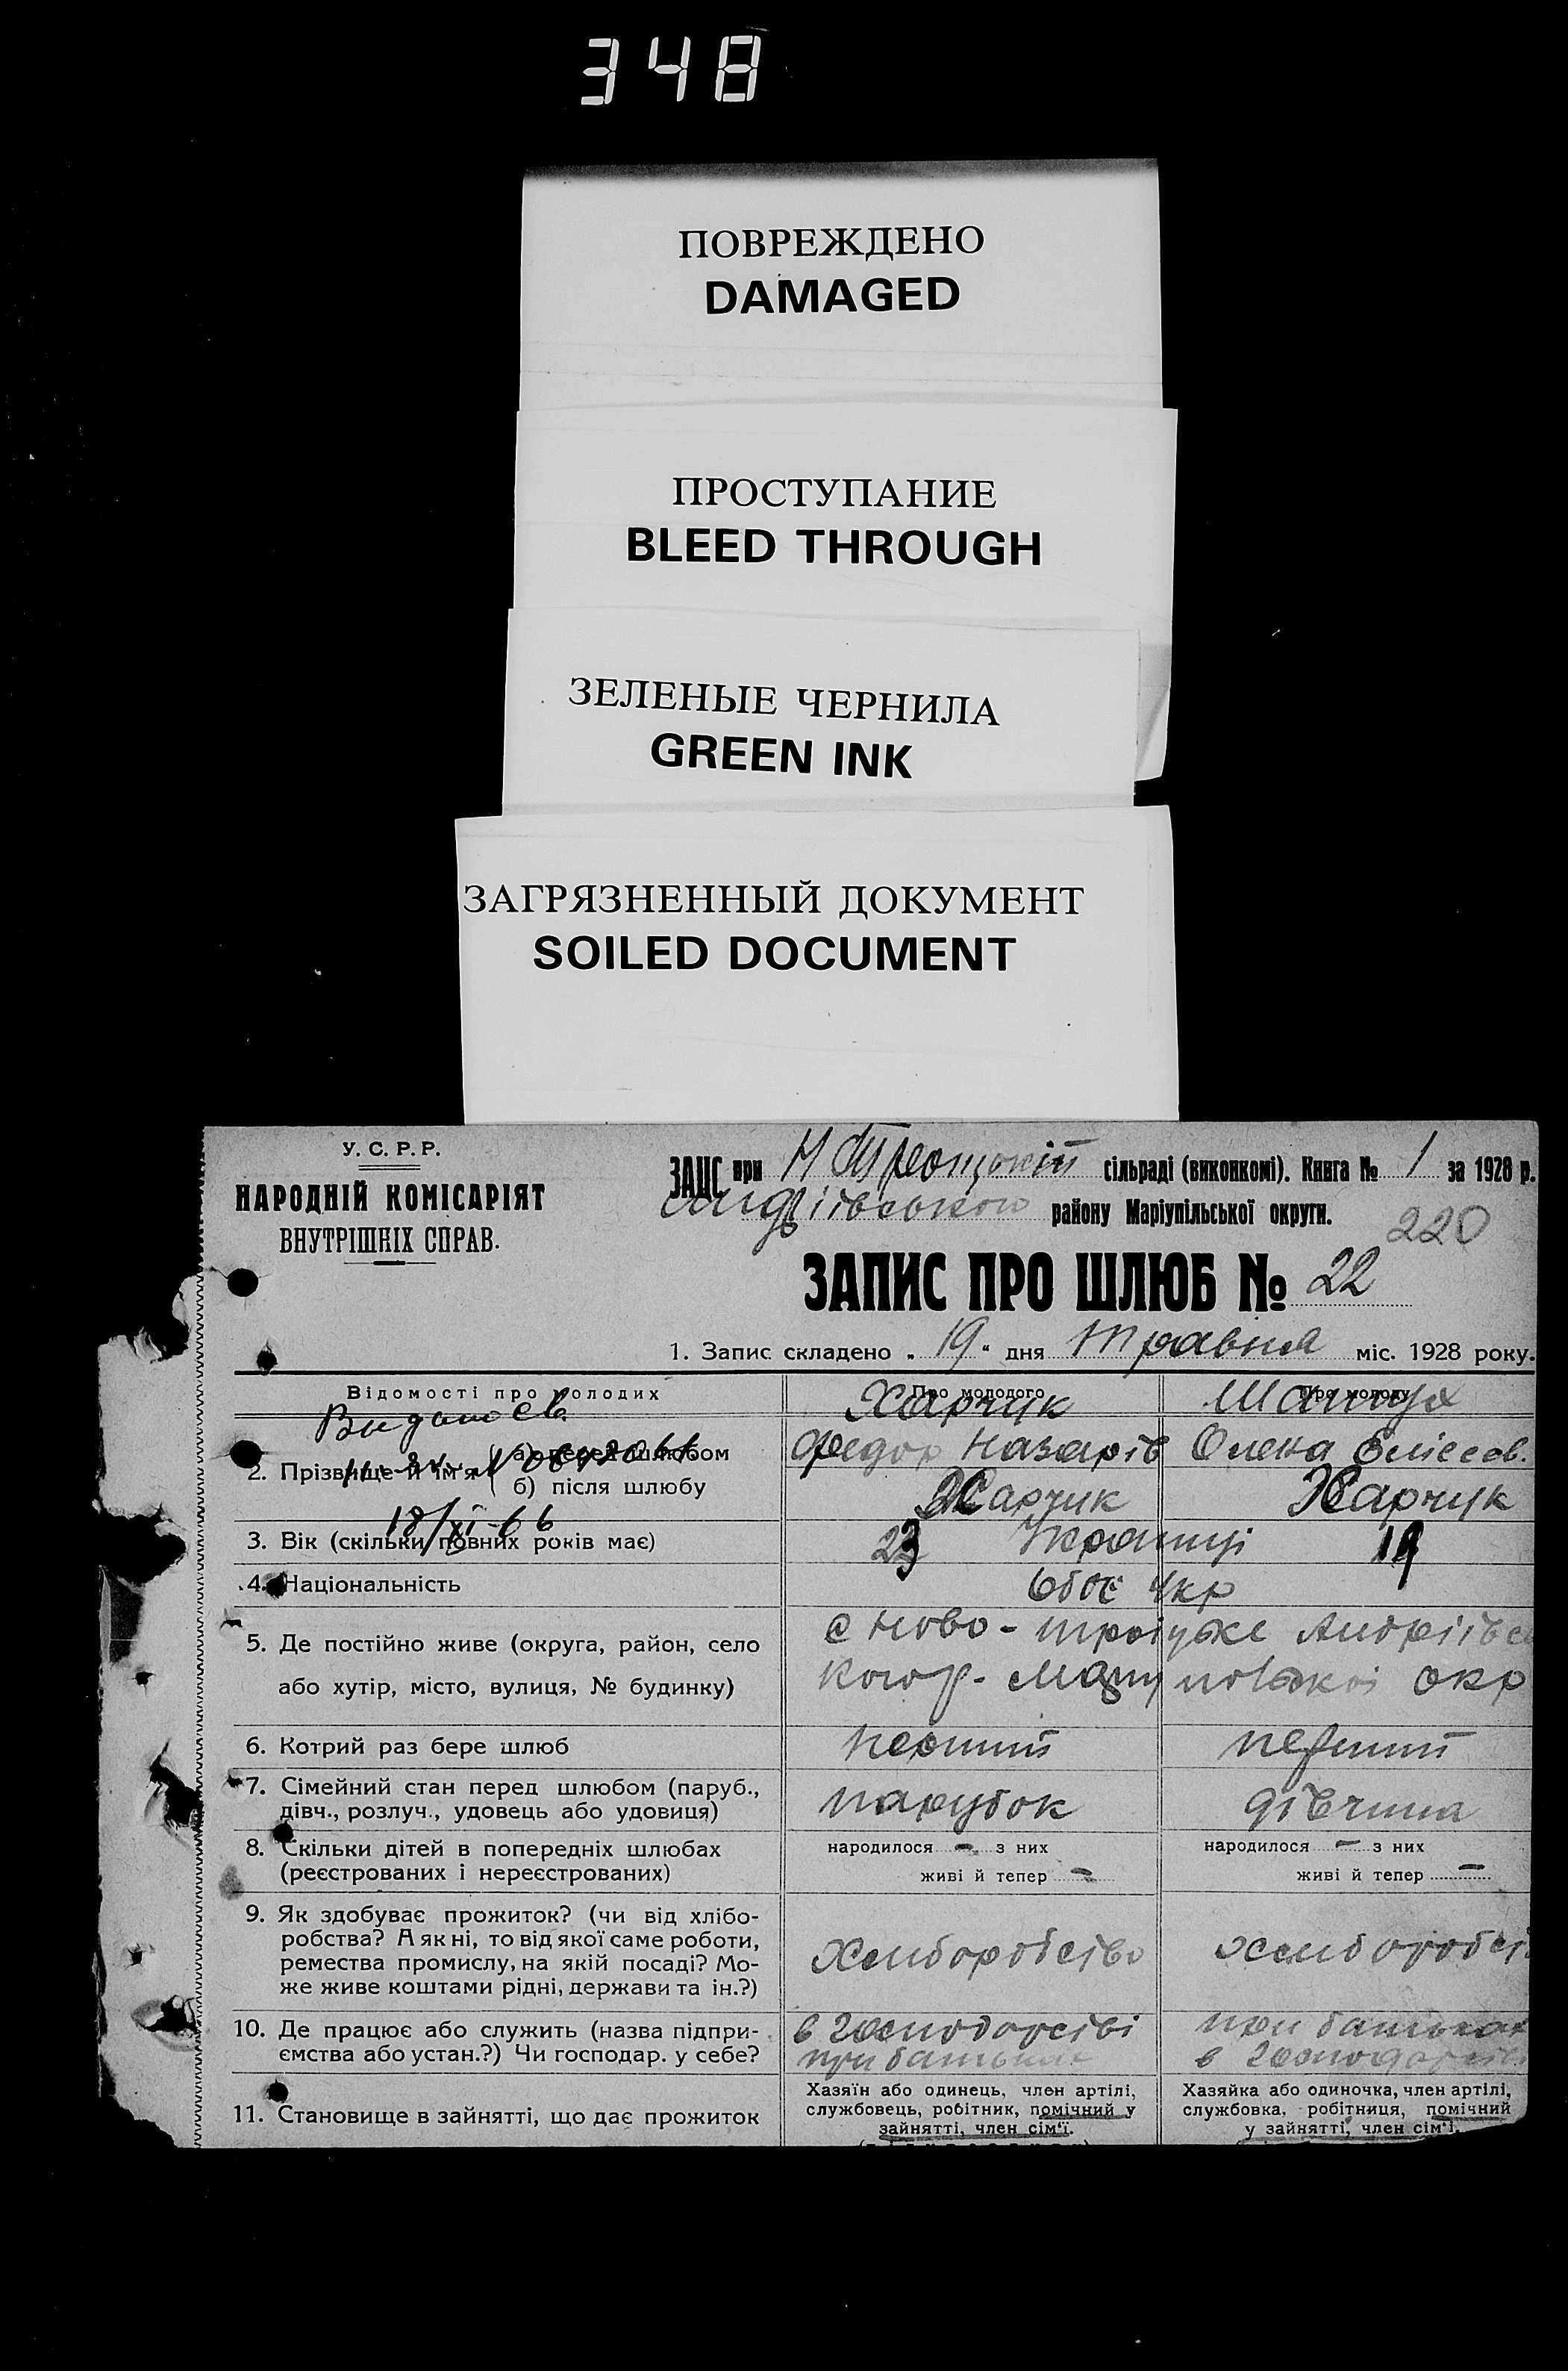 348
ПОВРЕЖДЕНО
DAMAGED
ПРОСТУПАНИЕ
BLEED THROUGH
ЗЕЛЕНЫЕ ЧЕРНИЛА
GREEN INK
ЗАГРЯЗНЕННЫЙ ДОКУМЕНТ
SOILED DOCUMENT
У. С. Р. Р.
НАРОДНІЙ КОМІСАРІЯТ
ВНУТРІШНІХ СПРАВ.
ЗАЦС при сільраді (виконкомі). Книга № 1 за 1928 р.
району Маріупільської округи.
220
ЗАПИС ПРО ШЛЮБ № 22
1. Запис складено „ 19 " дня Травня міс. 1928 року.
Відомості про молодих
Про молодого
Про молоду
2. Прізвище й ім'я
а) перед шлюбом
Харчук
Федор Назарів
Олена
б) після шлюбу
Харчук
Харчук
18/XI-66
3. Вік (скільки повних років має)
23
Украинці
19
4. Національність
Обоє Укр
5. Де постійно живе (округа, район, село
або хутір, місто, вулиця, № будинку)
с Ново-троіцьке
окр
6. Котрий раз бере шлюб
перший
перший
7. Сімейний стан перед шлюбом (паруб.,
дівч., розлуч., удовець або удовиця)
парубок
дівчина
8. Скільки дітей в попередніх шлюбах
(реєстрованих і нереєстрованих)
народилося – з них
живі й тепер –
народилося – з них
живі й тепер –
9. Як здобуває прожиток? (чи від хлібо-
робства? А як ні, то від якої саме роботи,
ремества промислу, на якій посаді? Мо-
же живе коштами рідні, держави та ін.?)
10. Де працює або служить (назва підпри-
ємства або устан.?) Чи господар. у себе?
в господарстві
при батьках
при батьках
в
11. Становище в зайнятті, що дає прожиток
Хазяїн або одинець, член артілі,
службовець, робітник, помічний у
зайнятті, член сім'ї.
Хазяйка або одиночка, член артілі,
службовка, робітниця, помічний
у зайнятті, член сім'ї.